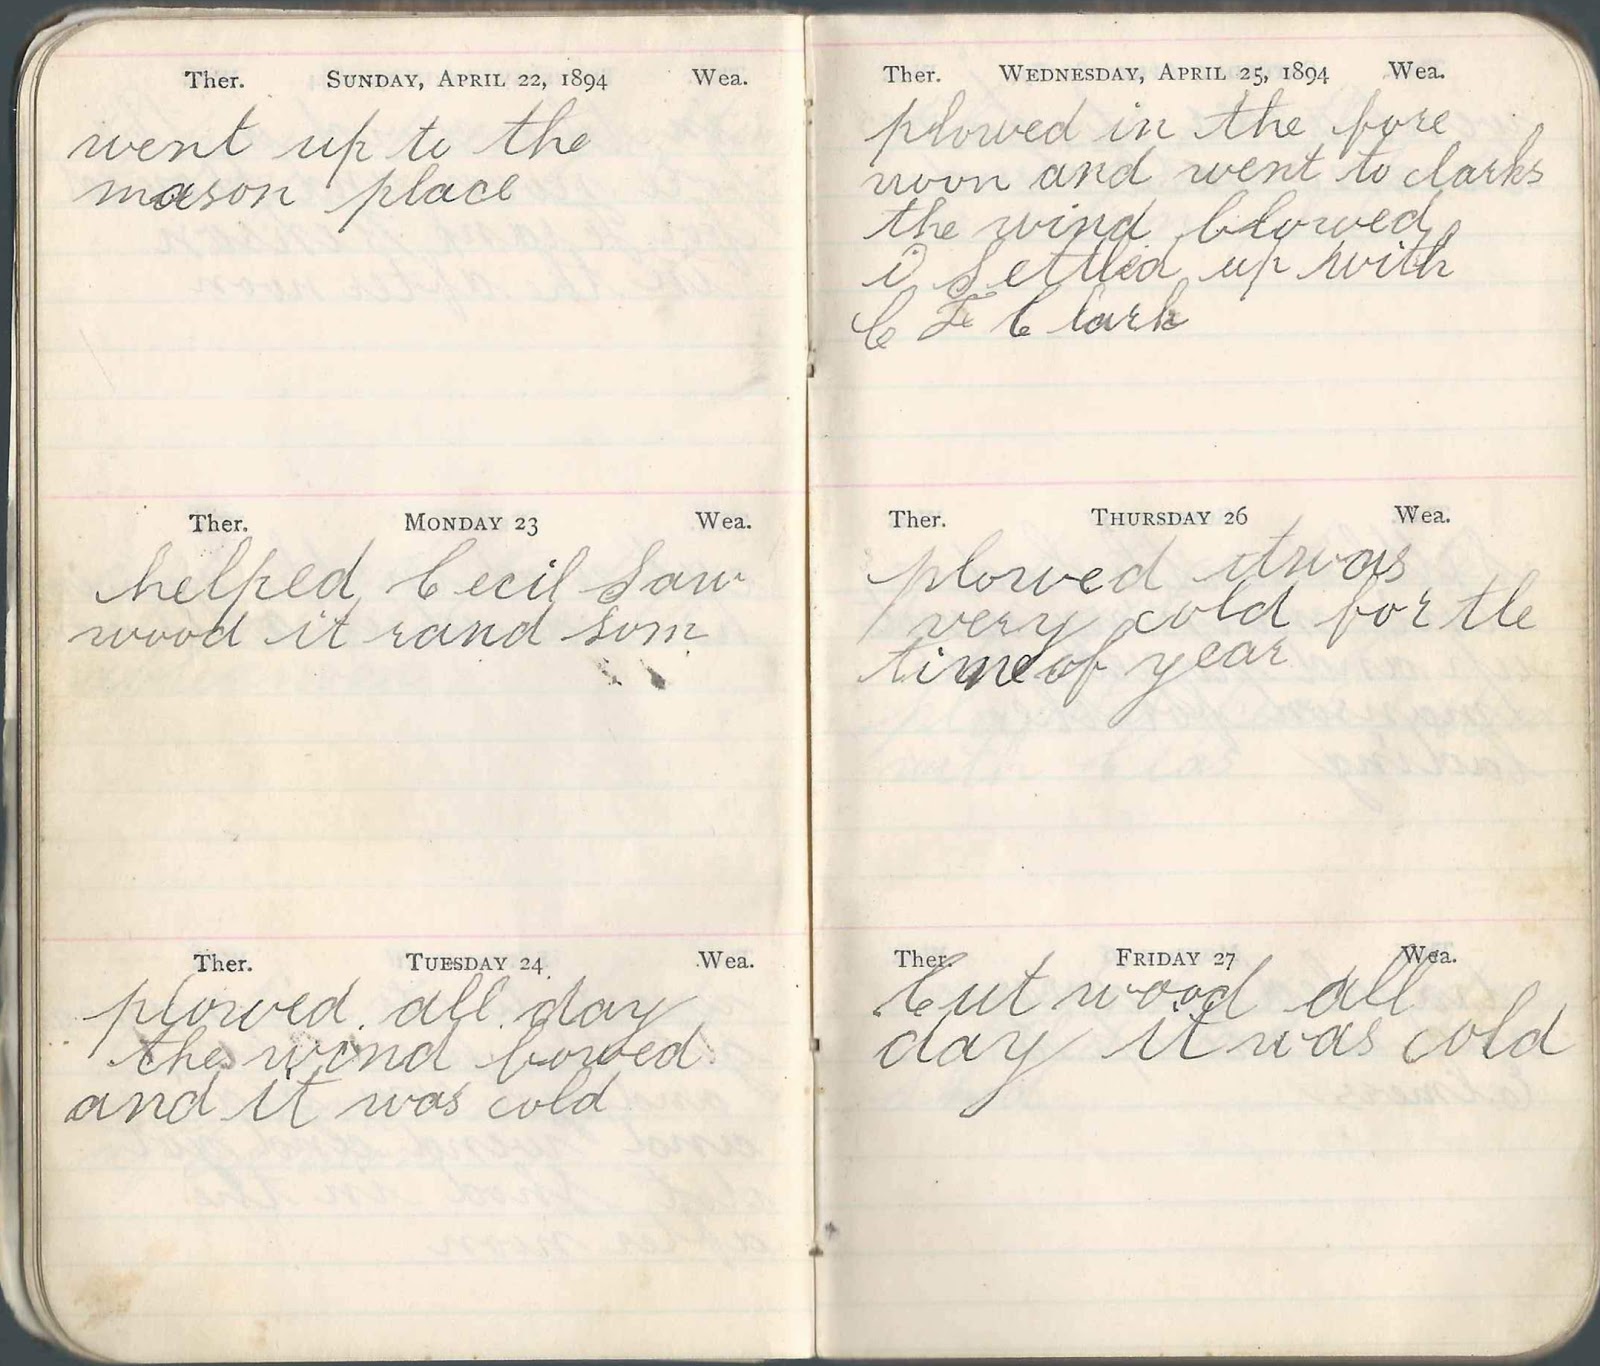 Ther. SUNDAY, APRIL 22, 1894 Wea.
went up to the
mason place
Ther. MONDAY 23 Wea.
helped Cecil Saw
wood it rand som
Ther. TUESDAY 24 Wea.
plowed all day
the wind bowed
and it was cold
Ther. WEDNESDAY, APRIL 25, 1894 Wea.
plowed in the fore
noon and went to clarks
the wind blowed
i Settled up with
C F Clark
Ther. THURSDAY 26 Wea.
plowed itwas
very cold for tle
time of year
Ther. FRIDAY 27 Wea.
Cut wood all
day it was cold